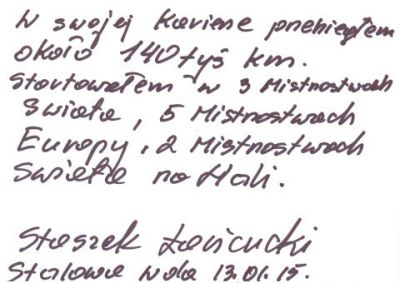 W swojej karierze przebiegłem
około 140 tyś km.
Startowałem w 3 Mistrostwach
Świata, 5 Mistrostwach
Europy, 2 Mistrostwach
Świata na Hali.
Staszek Łańcucki
Stalowa Wola 13.01.15.